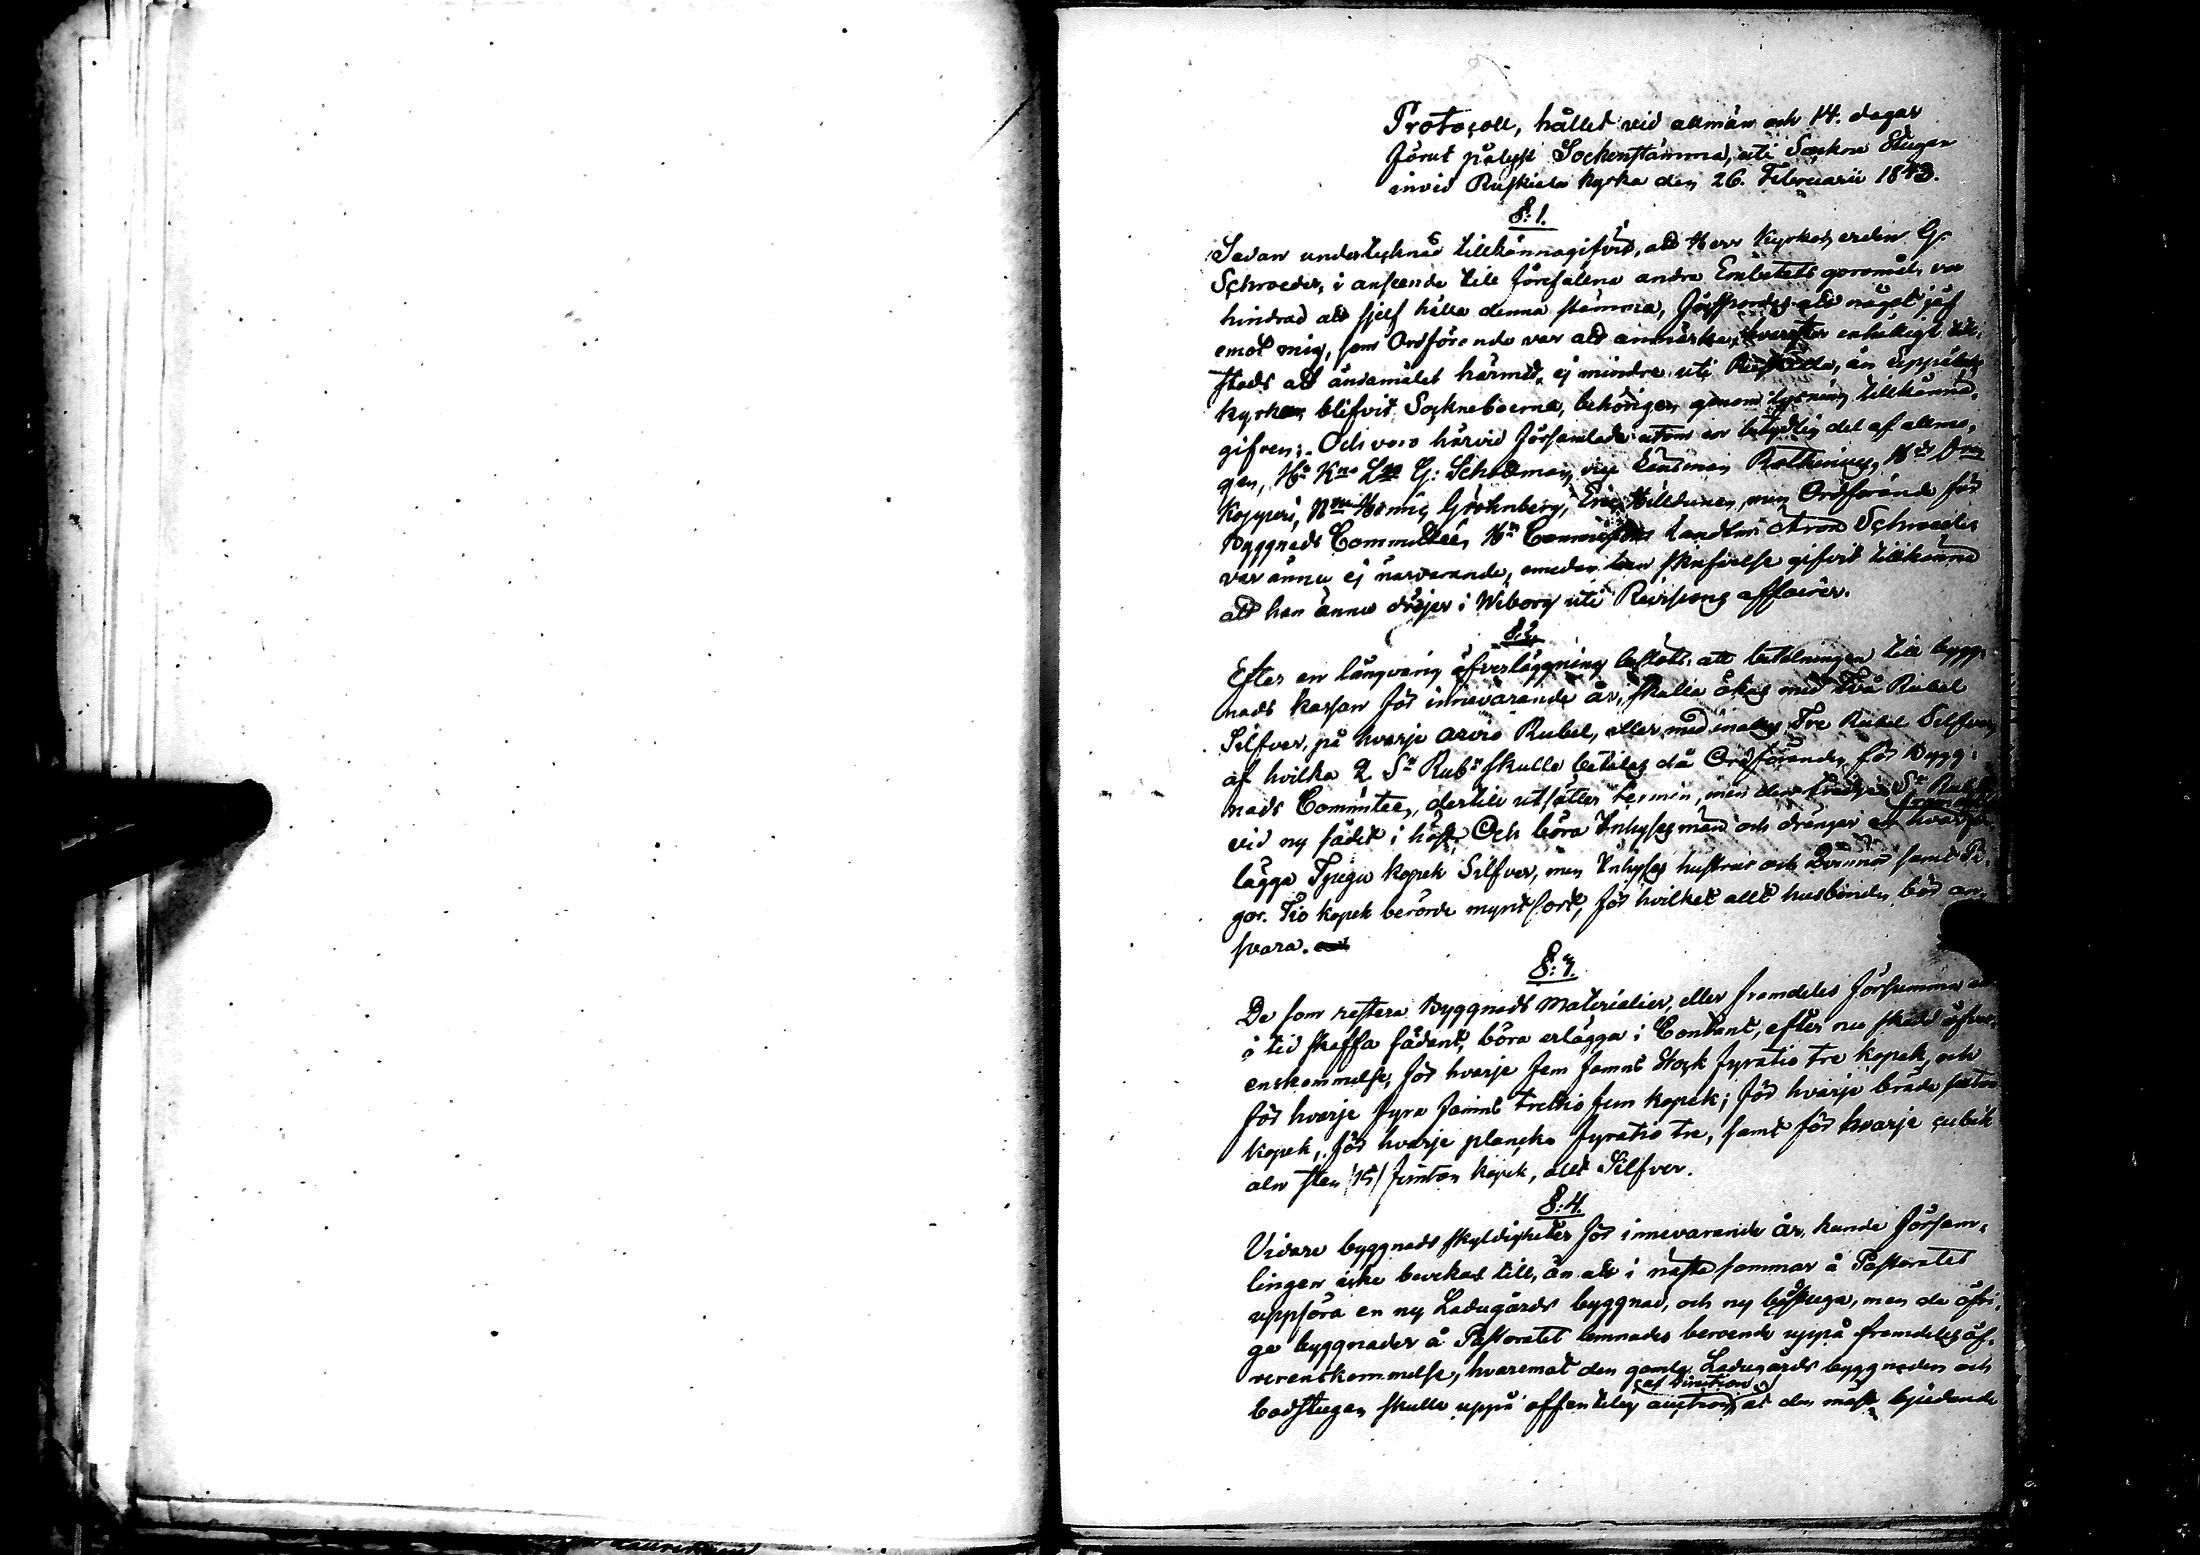 Protocoll, hållet vid allmän och 14. dagar
förut pålyst Sockenstämma, uti Sockne Stugan
invid Ruskiala kyrka den 26. Februarii 1843.
§: 1.
Sedan undertecknad tillkännagifvit, att Herr Kyrkoherden G:
Schroeder, i anseende till förefallna andra Embetets göromål, var
hindrad att sjelf hålla denna stämma, att något jäf
emot mig, som Ordförande var att anmärka, hvarefter enhälligt till-
stads att ändamålet härmed, ej mindre uti Ruskiala, än
kyrkan blifvit Sockneboerna, behörigen genom lysning tillkänna-
gifven; Och voro härvid församlade utom en betydlig del af allmo-
gen, G: vice Länsman
Grönberg, Eric men Ordförande för
Byggnads Committeen, Schroeder
var ännu ej närvarande, emedan han skriftelse gifvit tillkänna
att han ännu dröjer i Wiborg uti Revisions affairer.
§: 2.
Efter en långvarig öfverläggning beslöts: att betalningen till bygg-
nads kassan för innevarande år, skulle ökas med Två Rubel
Silfver, på hvarje arvio Rubel, eller med inalles Tre Rubel Silfver,
af hvilka 2 Sr Rubr skulle betalas då Ordföranden för Bygg-
nads Committeen, dertill utsätter termin, men den tredje Sr Rub
vid ny sädet i höst. Och böra Inhyses män och drängar hvarje
lägga Tjugu kopek Silfver, men Inhyses hustrur och Qvinnor samt Pi-
gor. Tio kopek berörde myntsort, för hvilket allt husbonden bör an-
svara.
§: 3.
De som restera Byggnads Materialier, eller framdeles försumma att
i tid skaffa sådant, böra erlägga i Contant, efter nu skedd öfver-
enskommelse, för hvarje fem famns Stock fyratio tre kopek, och
för hvarje fyra famns trettio fem kopek; för hvarje bräde
kopek, för hvarje plancka fyratio tre, samt för hvarje cubik
aln sten /15/ femton kopek, allt Silfver.
§: 4.
Vidare byggnads skyldigheter för innevarande år, kunde Försam-
lingen icke bevekas till, än att i nästa sommar å Pastoratet
uppföra en ny Ladugårds byggnad, och ny badstuga, men de öfri-
ga byggnader å Pastoratet lemnades beroende uppå framdeles öf-
verenskommelse, hvaremot den gamla Ladugårds byggnaden och
badstugan skulle uppå offentelig auction at den mäst bjudende